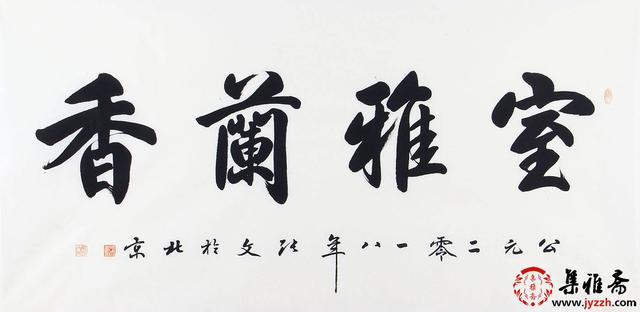 室雅蘭香
公元二零一八年文於北京
集雅斋
www.jyzzh.com